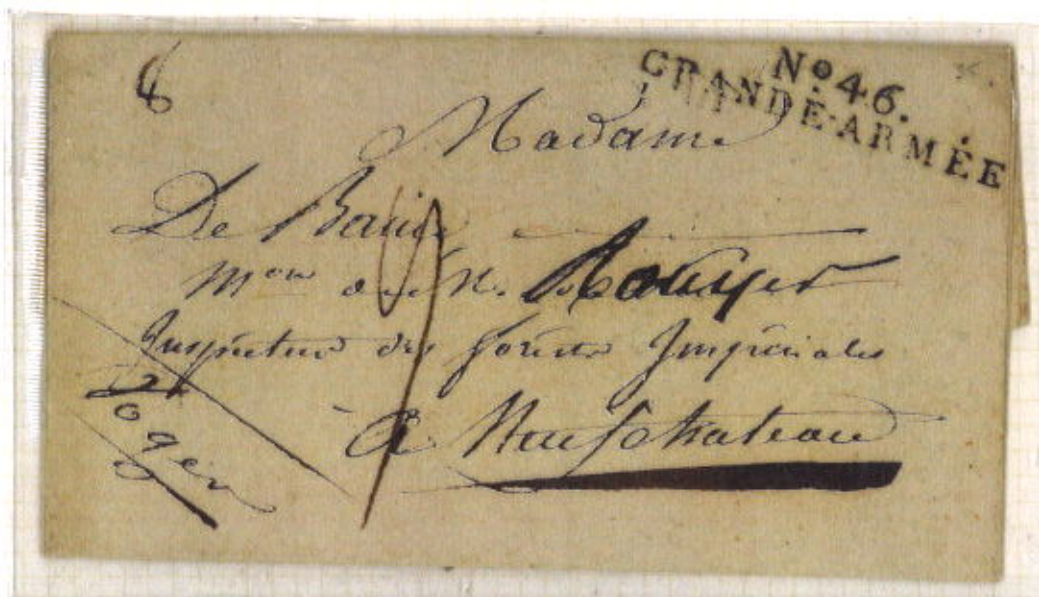 No 46.
GRANDE-ARMÉE
Madame
De
Mon de M. Rouyer
Inspecteur des forêts Impériales
A Neufchateau
Vosges